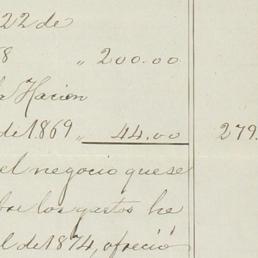 22 de
8 " 200.00
Hacien
de 1869 " 44.00 279
el negocio que se
los gastos he
l de 1874, ofreció